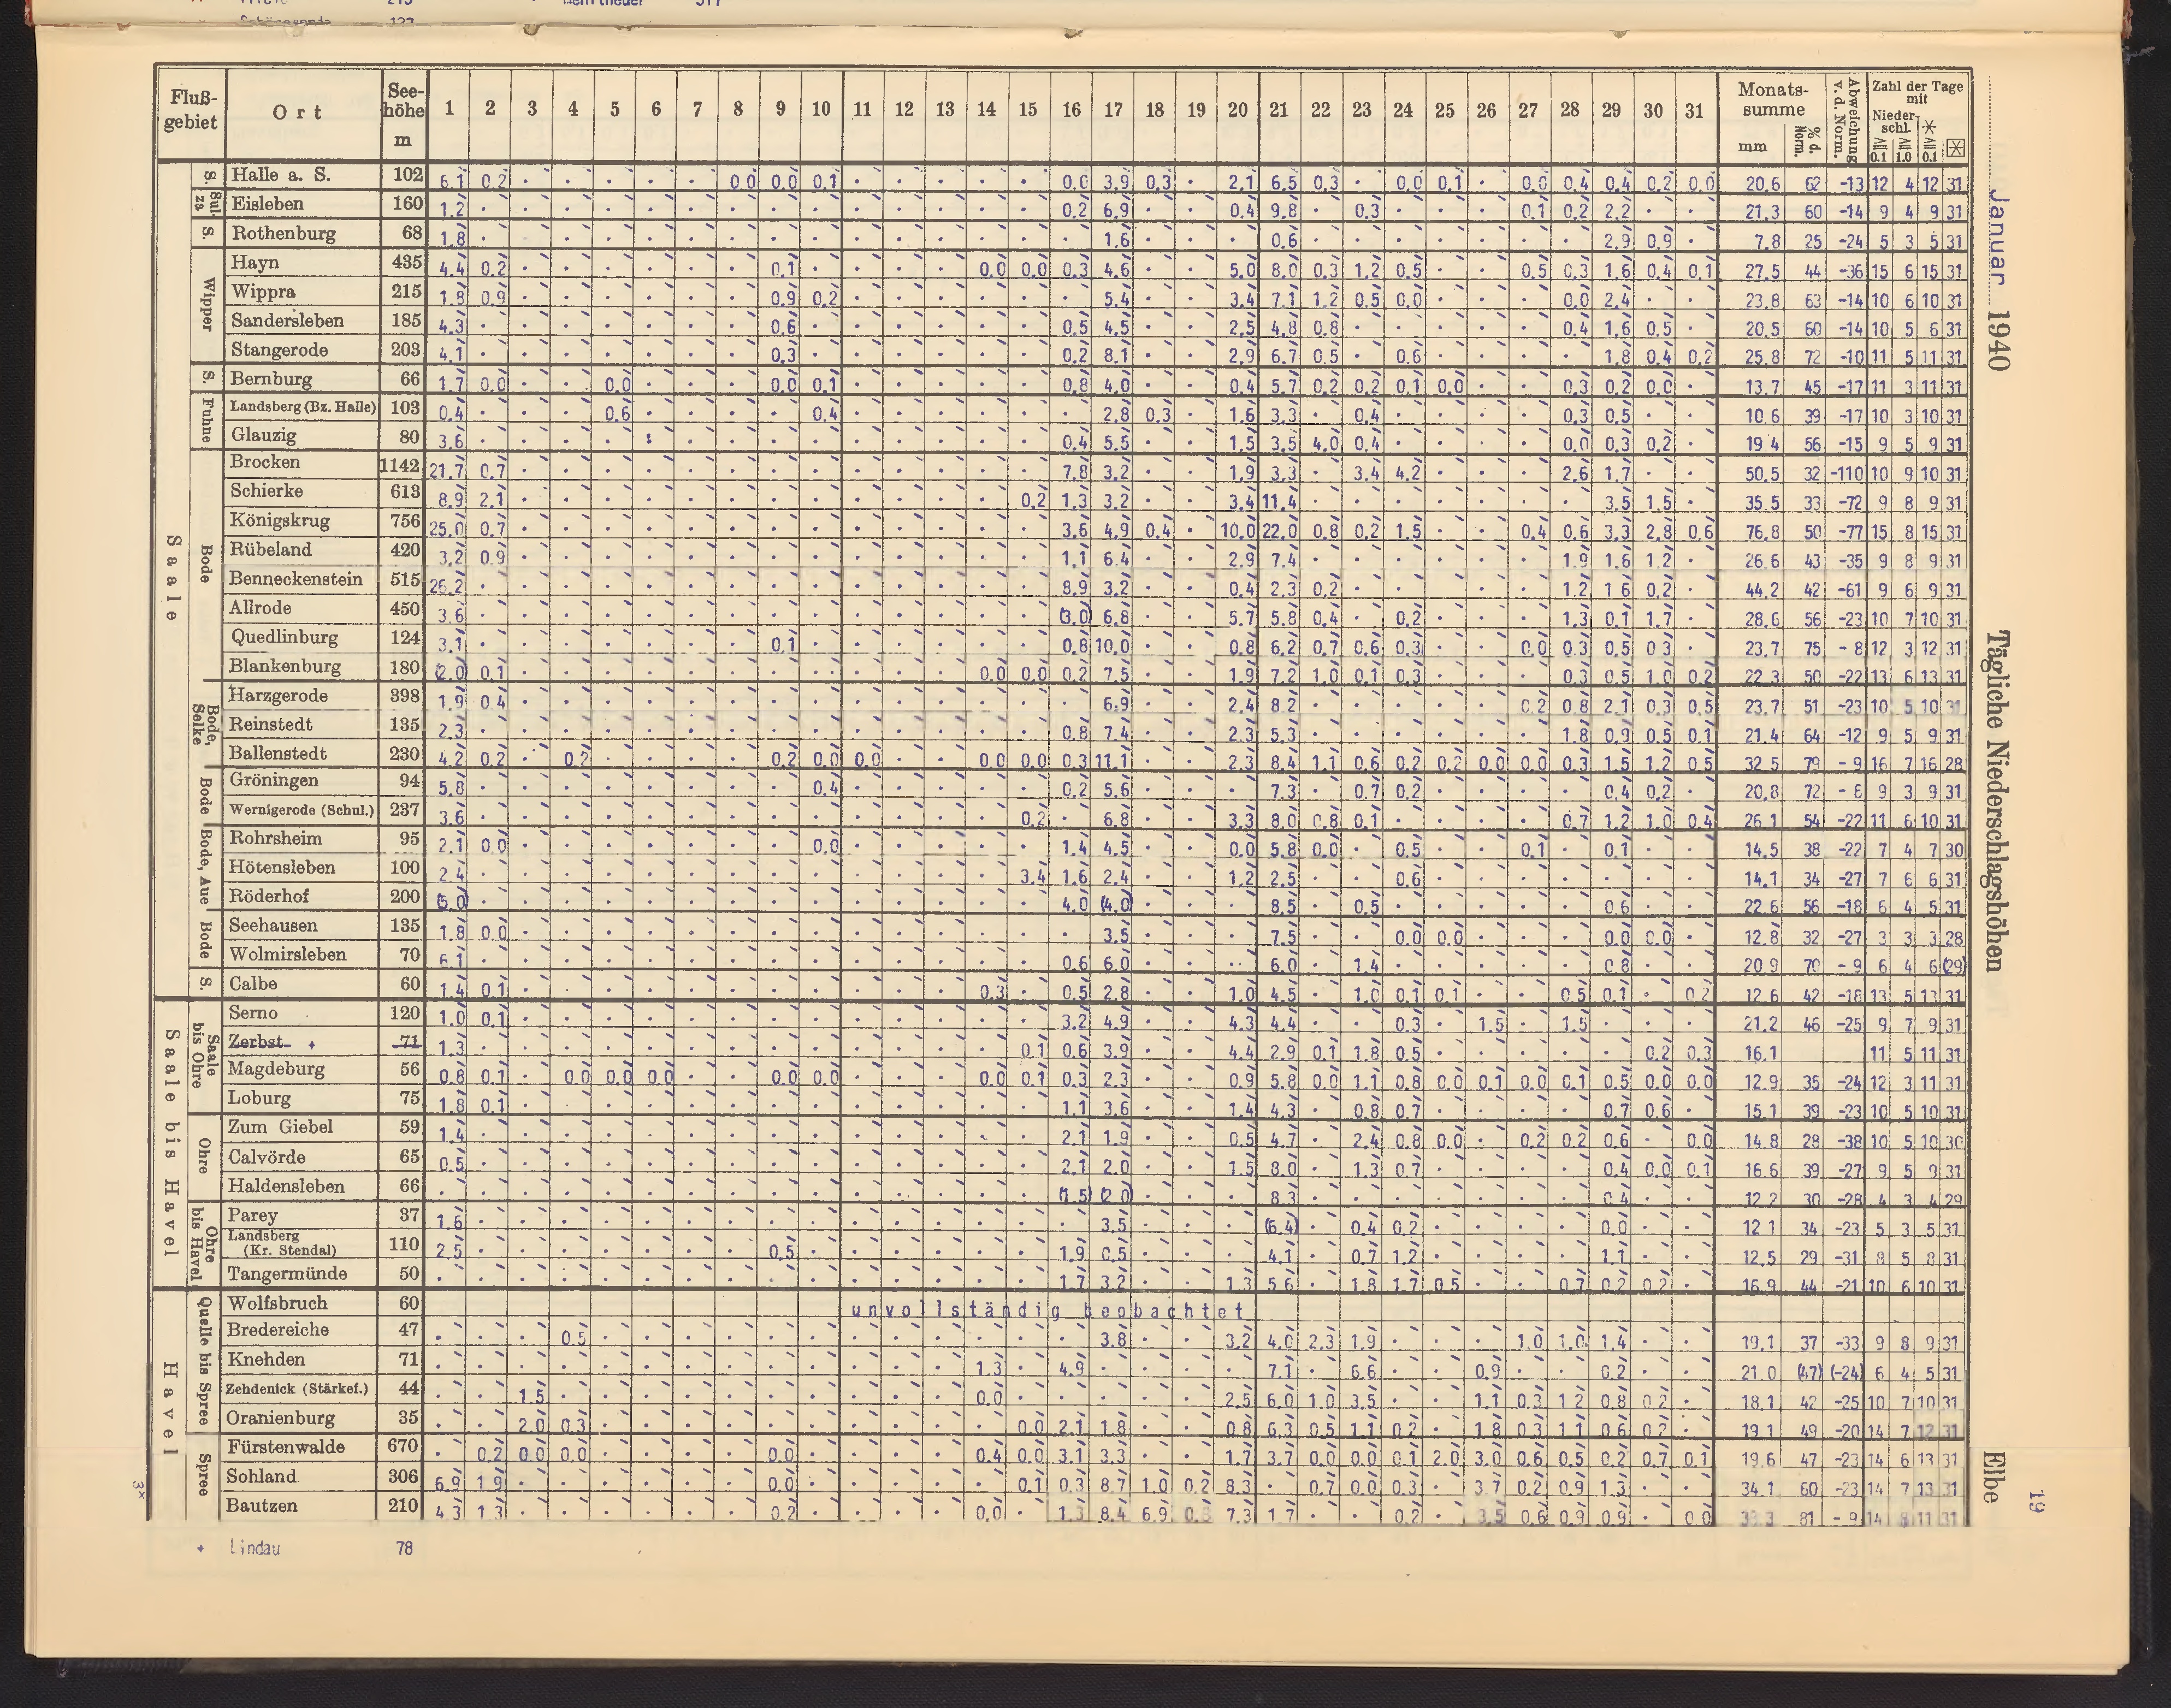 19
Januar 1940 Tägliche Niederschlagshöhen Elbe
Fluß-gebiet Ort See-höhe m 1 2 3 4 5 6 7 8 9 10 11 12 13 14 15 16 17 18 19 20 21 22 23 24 25 26 27 28 29 30 31 Monats-summe mm % d. Norm. Abweichung v. d. Norm. Zahl der Tage mit Nieder-schl. ≧ 0.1 ≧ 1.0 ≧ 0.1
Saale
S. Halle a. S. 102 6.1 0.2 . . . . . 0.0 0.0 0.1 . . . . . 0.0 3.9 0.3 . 2.1 6.5 0.3 . 0.0 0.1 . 0.0 0.4 0.4 0.2 0.0 20.6 62 -13 12 4 12 31
Sulza Eisleben 160 1.2 . . . . . . . . . . . . . . 0.2 6.9 . . 0.4 9.8 . 0.3 . . . 0.1 0.2 2.2 . . 21.3 60 -14 9 4 9 31
S. Rothenburg 68 1.8 . . . . . . . . . . . . . . . 1.6 . . . 0.6 . . . . . . . 2.9 0.9 . 7.8 25 -24 5 3 5 31
Wipper Hayn 435 4.4 0.2 . . . . . . 0.1 . . . . 0.0 0.0 0.3 4.6 . . 5.0 8.0 0.3 1.2 0.5 . . 0.5 0.3 1.6 0.4 0.1 27.5 44 -36 15 6 15 31
Wippra 215 1.8 0.9 . . . . . . 0.9 0.2 . . . . . . 5.4 . . 3.4 7.1 1.2 0.5 0.0 . . . 0.0 2.4 . . 23.8 63 -14 10 6 10 31
Sandersleben 185 4.3 . . . . . . . 0.6 . . . . . . 0.5 4.5 . . 2.5 4.8 0.8 . . . . . 0.4 1.6 0.5 . 20.5 60 -14 10 5 6 31
Stangerode 203 4.1 . . . . . . . 0.3 . . . . . . 0.2 8.1 . . 2.9 6.7 0.5 . 0.6 . . . . 1.8 0.4 0.2 25.8 72 -10 11 5 11 31
S. Bernburg 66 1.7 0.0 . . 0.0 . . . 0.0 0.1 . . . . . 0.8 4.0 . . 0.4 5.7 0.2 0.2 0.1 0.0 . . 0.3 0.2 0.0 . 13.7 45 -17 11 3 11 31
Fuhne Landsberg (Bz. Halle) 103 0.4 . . . 0.6 . . . . 0.4 . . . . . . 2.8 0.3 . 1.6 3.3 . 0.4 . . . . 0.3 0.5 . . 10.6 39 -17 10 3 10 31
Glauzig 80 3.6 . . . . : . . . . . . . . . 0.4 5.5 . . 1.5 3.5 4.0 0.4 . . . . 0.0 0.3 0.2 . 19 4 56 -15 9 5 9 31
Bode Brocken 1142 21.7 0.7 . . . . . . . . . . . . . 7.8 3.2 . . 1.9 3.3 . 3.4 4.2 . . . 2.6 1.7 . . 50.5 32 -110 10 9 10 31
Schierke 613 8.9 2.1 . . . . . . . . . . . . 0.2 1.3 3.2 . . 3.4 11.4 . . . . . . . 3.5 1.5 . 35.5 33 -72 9 8 9 31
Königskrug 756 25.0 0.7 . . . . . . . . . . . . . 3.6 4.9 0.4 . 10.0 22.0 0.8 0.2 1.5 . . 0.4 0.6 3.3 2.8 0.6 76.8 50 -77 15 8 15 31
Rübeland 420 3.2 0.9 . . . . . . . . . . . . . 1.1 6.4 . . 2.9 7.4 . . . . . . 1.9 1.6 1.2 . 26.6 43 -35 9 8 9 31
Benneckenstein 515 26.2 . . . . . . . . . . . . . . 8.9 3.2 . . 0.4 2.3 0.2 . . . . . 1.2 1 6 0.2 . 44.2 42 -61 9 6 9 31
Allrode 450 3.6 . . . . . . . . . . . . . . (3.0) 6.8 . . 5.7 5.8 0.4 . 0.2 . . . 1.3 0.1 1.7 . 28.6 56 -23 10 7 10 31
Quedlinburg 124 3.1 . . . . . . . 0.1 . . . . . . 0.8 10.0 . . 0.8 6.2 0.7 0.6 0.3 . . 0.0 0.3 0.5 0 3 . 23.7 75 - 8 12 3 12 31
Blankenburg 180 (2.0) 0.1 . . . . . . . . . . . 0.0 0.0 0.2 7.5 . . 1.9 7.2 1.0 0.1 0.3 . . . 0.3 0.5 1.0 0.2 22.3 50 -22 13 6 13 31
Bode, Selke Harzgerode 398 1.9 0.4 . . . . . . . . . . . . . . 6.9 . . 2.4 8.2 . . . . . 0.2 0.8 2.1 0.3 0.5 23.7 51 -23 10 5 10 31
Reinstedt 135 2.3 . . . . . . . . . . . . . . 0.8 7.4 . . 2.3 5.3 . . . . . . 1.8 0.9 0.5 0.1 21.4 64 -12 9 5 9 31
Ballenstedt 230 4.2 0.2 . 0.2 . . . . 0.2 0.0 0.0 . . 0.0 0.0 0.3 11.1 . . 2.3 8.4 1.1 0.6 0.2 0.2 0.0 0.0 0.3 1.5 1.2 0.5 32.5 79 - 9 16 7 16 28
Bode Gröningen 94 5.8 . . . . . . . . 0.4 . . . . . 0.2 5.6 . . . 7.3 . 0.7 0.2 . . . . 0.4 0.2 . 20.8 72 - 8 9 3 9 31
Wernigerode (Schul.) 237 3.6 . . . . . . . . . . . . . 0.2 . 6.8 . . 3.3 8.0 0.8 0.1 . . . . 0.7 1.2 1.0 0.4 26.1 54 -22 11 6 10 31
Bode, Aue Rohrsheim 95 2.1 0.0 . . . . . . . 0.0 . . . . . 1.4 4.5 . . 0.0 5.8 0.0 . 0.5 . . 0.1 . 0.1 . . 14.5 38 -22 7 4 7 30
Hötensleben 100 2.4 . . . . . . . . . . . . . 3.4 1.6 2.4 . . 1.2 2.5 . . 0.6 . . . . . . . 14.1 34 -27 7 6 6 31
Röderhof 200 (5.0) . . . . . . . . . . . . . . 4.0 (4.0) . . . 8.5 . 0.5 . . . . . 0.6 . . 22.6 56 -18 6 4 5 31
Bode Seehausen 135 1.8 0.0 . . . . . . . . . . . . . . 3.5 . . . 7.5 . . 0.0 0.0 . . . 0.0 0.0 . 12.8 32 -27 3 3 3 28
Wolmirsleben 70 6.1 . . . . . . . . . . . . . . 0.6 6.0 . . . 6.0 . 1.4 . . . . . 0.8 . . 20.9 70 - 9 6 4 6 (29)
S. Calbe 60 1.4 0.1 . . . . . . . . . . . 0.3 . 0.5 2.8 . . 1.0 4.5 . 1.0 0.1 0.1 . . 0.5 0.1 . 0.2 12.6 42 -18 13 5 13 31
Saale bis Havel
Saale bis Ohre Serno 120 1.0 0.1 . . . . . . . . . . . . . 3.2 4.9 . . 4.3 4.4 . . 0.3 . 1.5 . 1.5 . . . 21.2 46 -25 9 7 9 31
Zerbst + 71 1.3 . . . . . . . . . . . . . 0.1 0.6 3.9 . . 4.4 2.9 0.1 1.8 0.5 . . . . . 0.2 0.3 16.1 11 5 11 31
Magdeburg 56 0.8 0.1 . 0.0 0.0 0.0 . . 0.0 0.0 . . . 0.0 0.1 0.3 2.3 . . 0.9 5.8 0.0 1.1 0.8 0.0 0.1 0.0 0.1 0.5 0.0 0.0 12.9 35 -24 12 3 11 31
Loburg 75 1.8 0.1 . . . . . . . . . . . . . 1.1 3.6 . . 1.4 4.3 . 0.8 0.7 . . . . 0.7 0.6 . 15.1 39 -23 10 5 10 31
Ohre Zum Giebel 59 1.4 . . . . . . . . . . . . . . 2.1 1.9 . . 0.5 4.7 . 2.4 0.8 0.0 . 0.2 0.2 0.6 . 0.0 14.8 28 -38 10 5 10 30
Calvörde 65 0.5 . . . . . . . . . . . . . . 2.1 2.0 . . 1.5 8.0 . 1.3 0.7 . . . . 0.4 0.0 0.1 16.6 39 -27 9 5 9 31
Haldensleben 66 . . . . . . . . . . . . . . . (1.5) (2.0) . . . 8.3 . . . . . . . 0.4 . . 12.2 30 -28 4 3 4 29
Ohre bis Havel Parey 37 1.6 . . . . . . . . . . . . . . . 3.5 . . . (6.4) . 0.4 0.2 . . . . 0.0 . . 12 1 34 -23 5 3 5 31
Landsberg (Kr. Stendal) 110 2.5 . . . . . . . 0.5 . . . . . . 1.9 0.5 . . . 4.1 . 0.7 1.2 . . . . 1.1 . . 12.5 29 -31 8 5 8 31
Tangermünde 50 . . . . . . . . . . . . . . . 1.7 3.2 . . 1.3 5.6 . 1.8 1.7 0.5 . . 0.7 0.2 0.2 . 16.9 44 -21 10 6 10 31
Havel
Quelle bis Spree Wolfsbruch 60 unvollständig beobachtet
Bredereiche 47 . . . 0.5 . . . . . . . . . . . . 3.8 . . 3.2 4.0 2.3 1.9 . . . 1.0 1.0 1.4 . . 19.1 37 -33 9 8 9 31
Knehden 71 . . . . . . . . . . . . . 1.3 . 4.9 . . . . 7.1 . 6.6 . . 0.9 . . 0.2 . . 21 0 (47) (-24) 6 4 5 31
Zehdenick (Stärkef.) 44 . . 1.5 . . . . . . . . . . 0.0 . . . . . 2.5 6.0 1.0 3.5 . . 1.1 0.3 1 2 0.8 0.2 . 18.1 42 -25 10 7 10 31
Oranienburg 35 . . 2.0 0.3 . . . . . . . . . . 0.0 2.1 1.8 . . 0.8 6.3 0.5 1.1 0.2 . 1 8 0.3 1.1 0.6 0.2 . 19.1 49 -20 14 7 12 31
Spree Fürstenwalde 670 . 0.2 0.0 0.0 . . . . 0.0 . . . . 0.4 0.0 3.1 3.3 . . 1.7 3.7 0.0 0.0 0.1 2.0 3.0 0.6 0.5 0.2 0.7 0.1 19.6 47 -23 14 6 13 31
Sohland 306 6.9 1.9 . . . . . . 0.0 . . . . . 0.1 0.3 8.7 1.0 0.2 8.3 . 0.7 0.0 0.3 . 3.7 0.2 0.9 1.3 . . 34.1 60 -23 14 7 13 31
Bautzen 210 4.3 1.3 . . . . . . 0.2 . . . . 0.0 . 1.3 8.4 6.9 7.3 1 7 . . 0.2 . 3.5 0.6 0.9 0.9 . 0 0 81 - 9 14 8 11 31
+ Lindau 78
3*